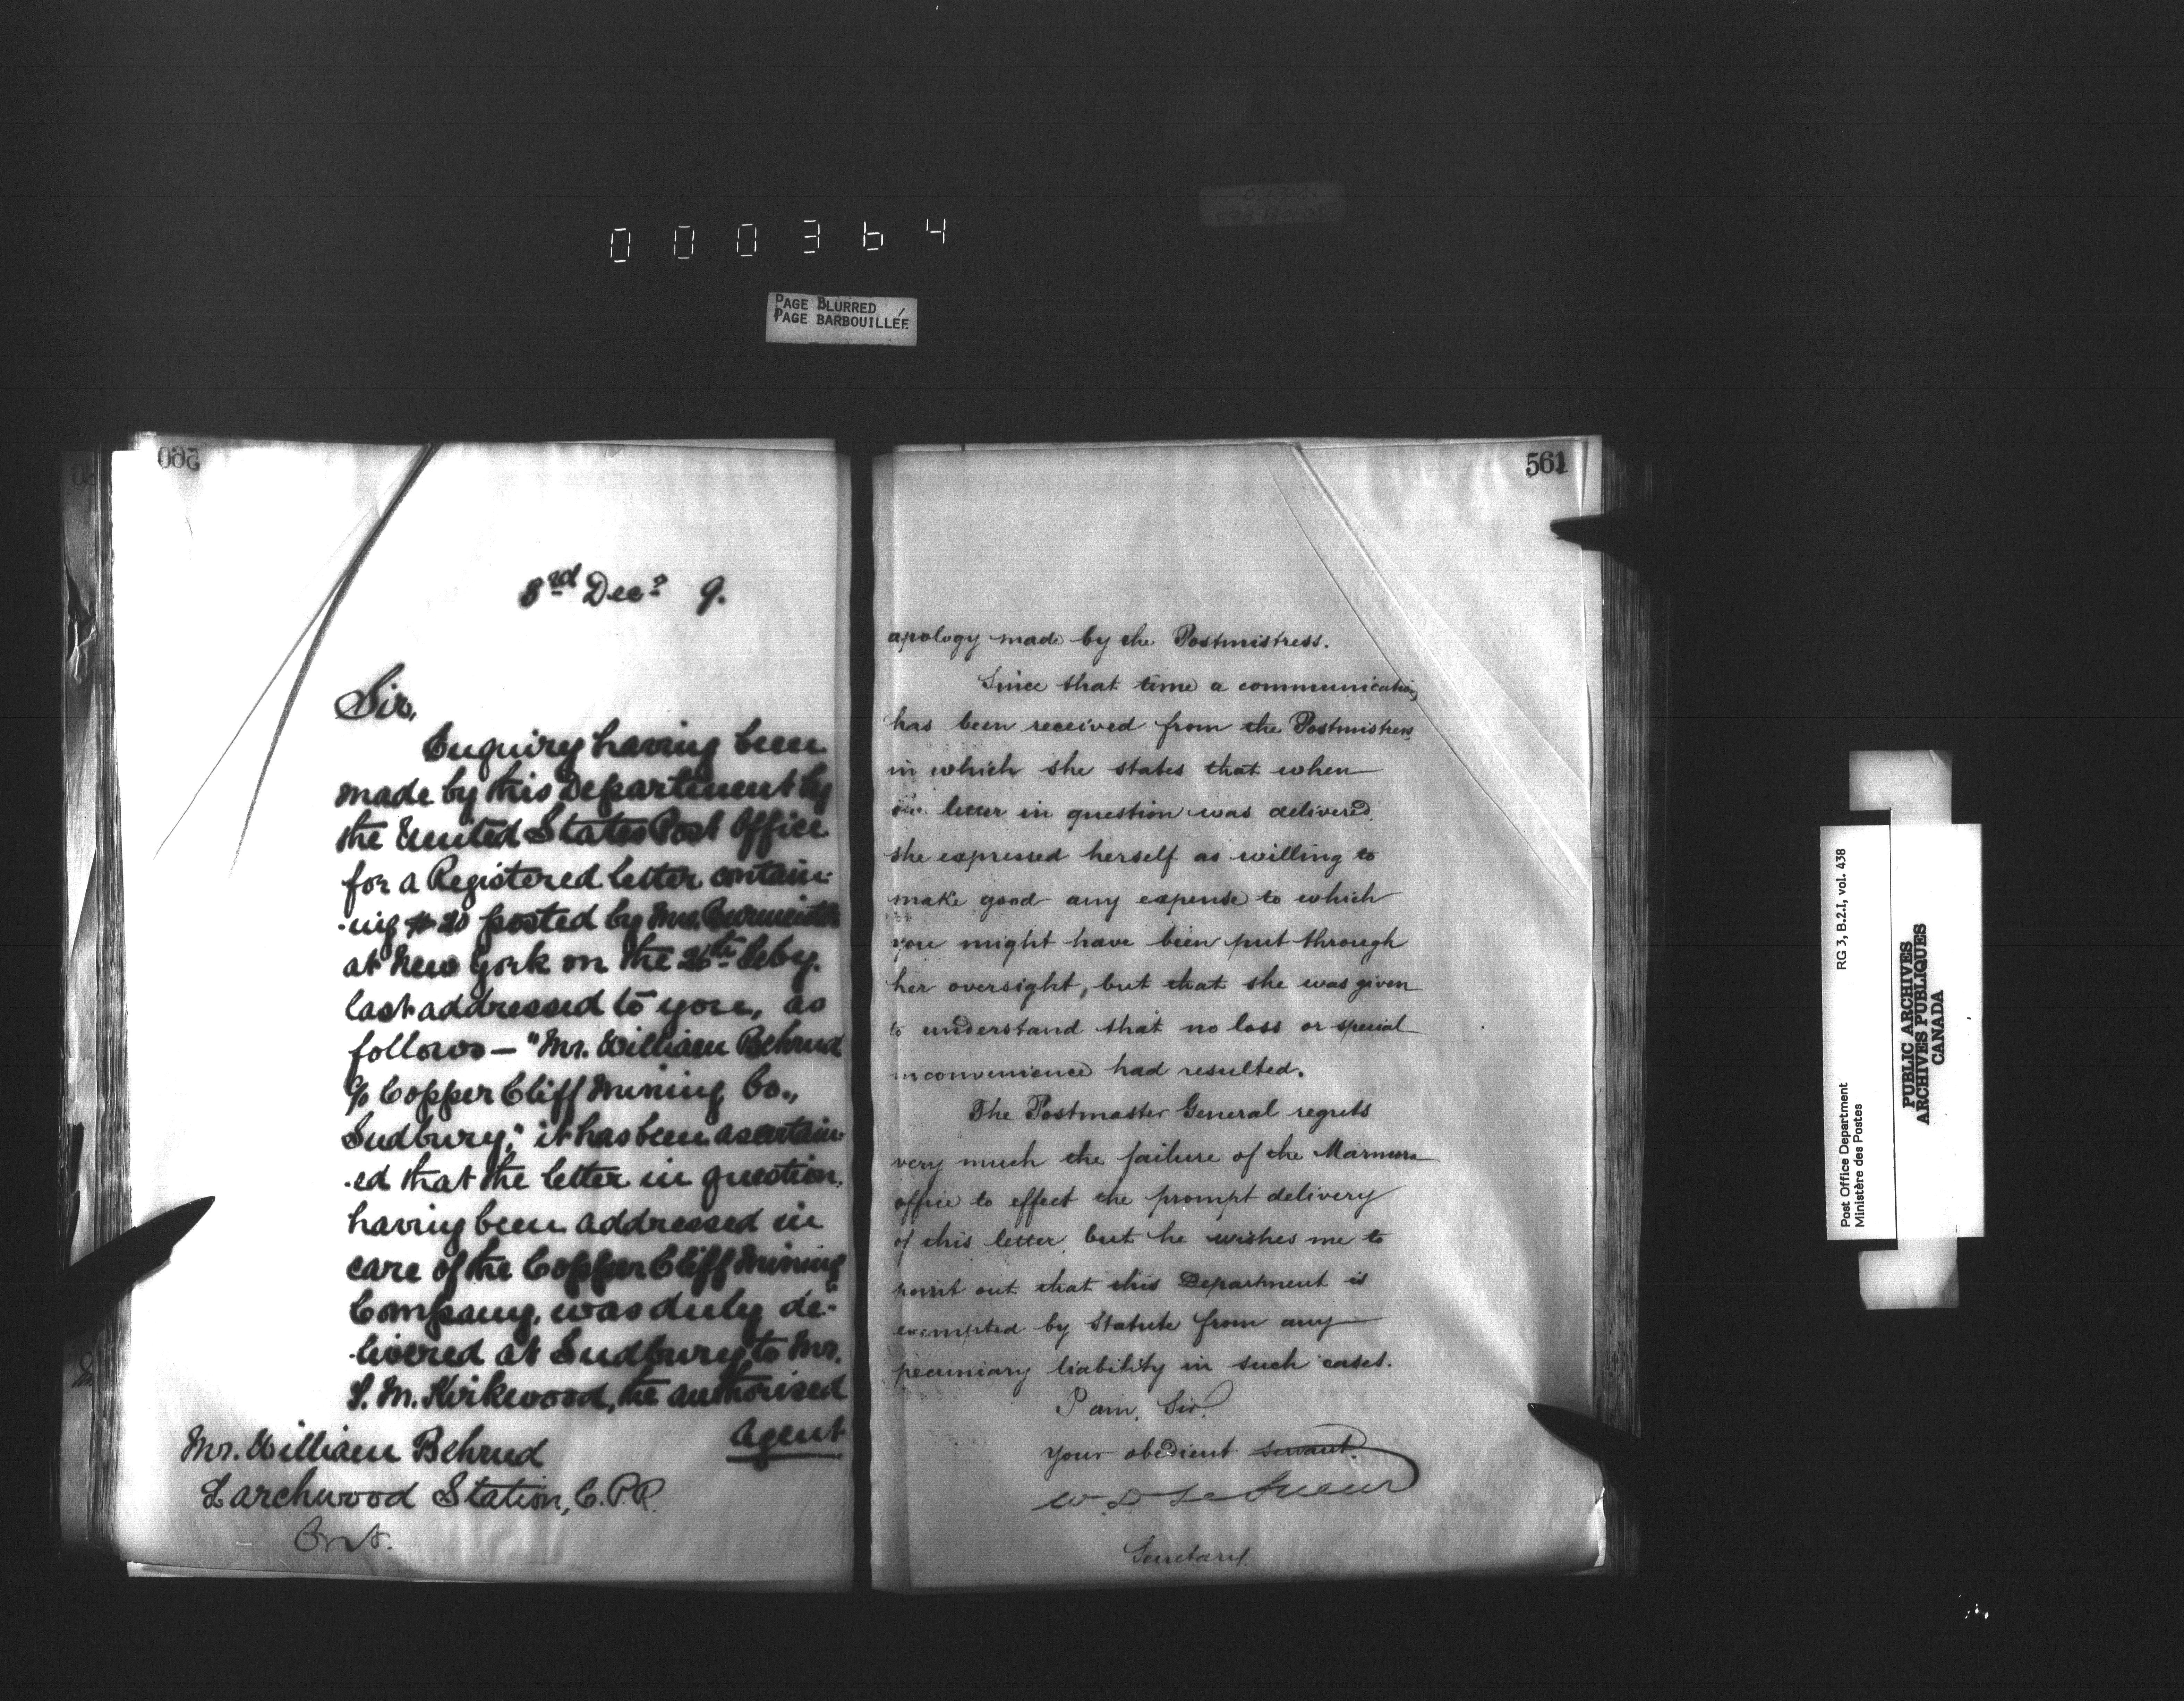 000364
PAGE BLURRED
PAGE BARBOUILLÉE
560
3rd Decr 9.
Sir,
Enquiry having been
made by this Department by
the United States Post Office
for a Registered letter contain-
-ing $20 posted by Mrs.
at New York on the 26th Feby.
last addressed to you, as
follows — "Mr. William Behrud
c/o Copper Cliff Mining Co.,
Sudbury," it has been ascertain-
-ed that the letter in question,
having been addressed in
care of the Copper Cliff Mining
Company, was duly de-
-livered at Sudbury to Mr.
M. Kirkwood, the authorised
Agent
Mr. William Behrud
Larchwood Station, C.P.R.
Ont.
561
apology made by the Postmistress.
Since that time a communication
has been received from the Postmistress
in which she states that when
letter in question was delivered,
she expressed herself as willing to
make good any expense to which
you might have been put through
her oversight, but that she was given
to understand that no loss or special
inconvenience had resulted.
The Postmaster General regrets
very much the failure of the Marmora
office to effect the prompt delivery
of this letter, but he wishes me to
point out that this Department is
exempted by Statute from any
pecuniary liability in such cases.
I am, Sir,
Your obedient servant.
W. D. LeSueur
Secretary.
Post Office Department RG 3, B.2.I, vol. 438
Ministère des Postes
PUBLIC ARCHIVES
ARCHIVES PUBLIQUES
CANADA